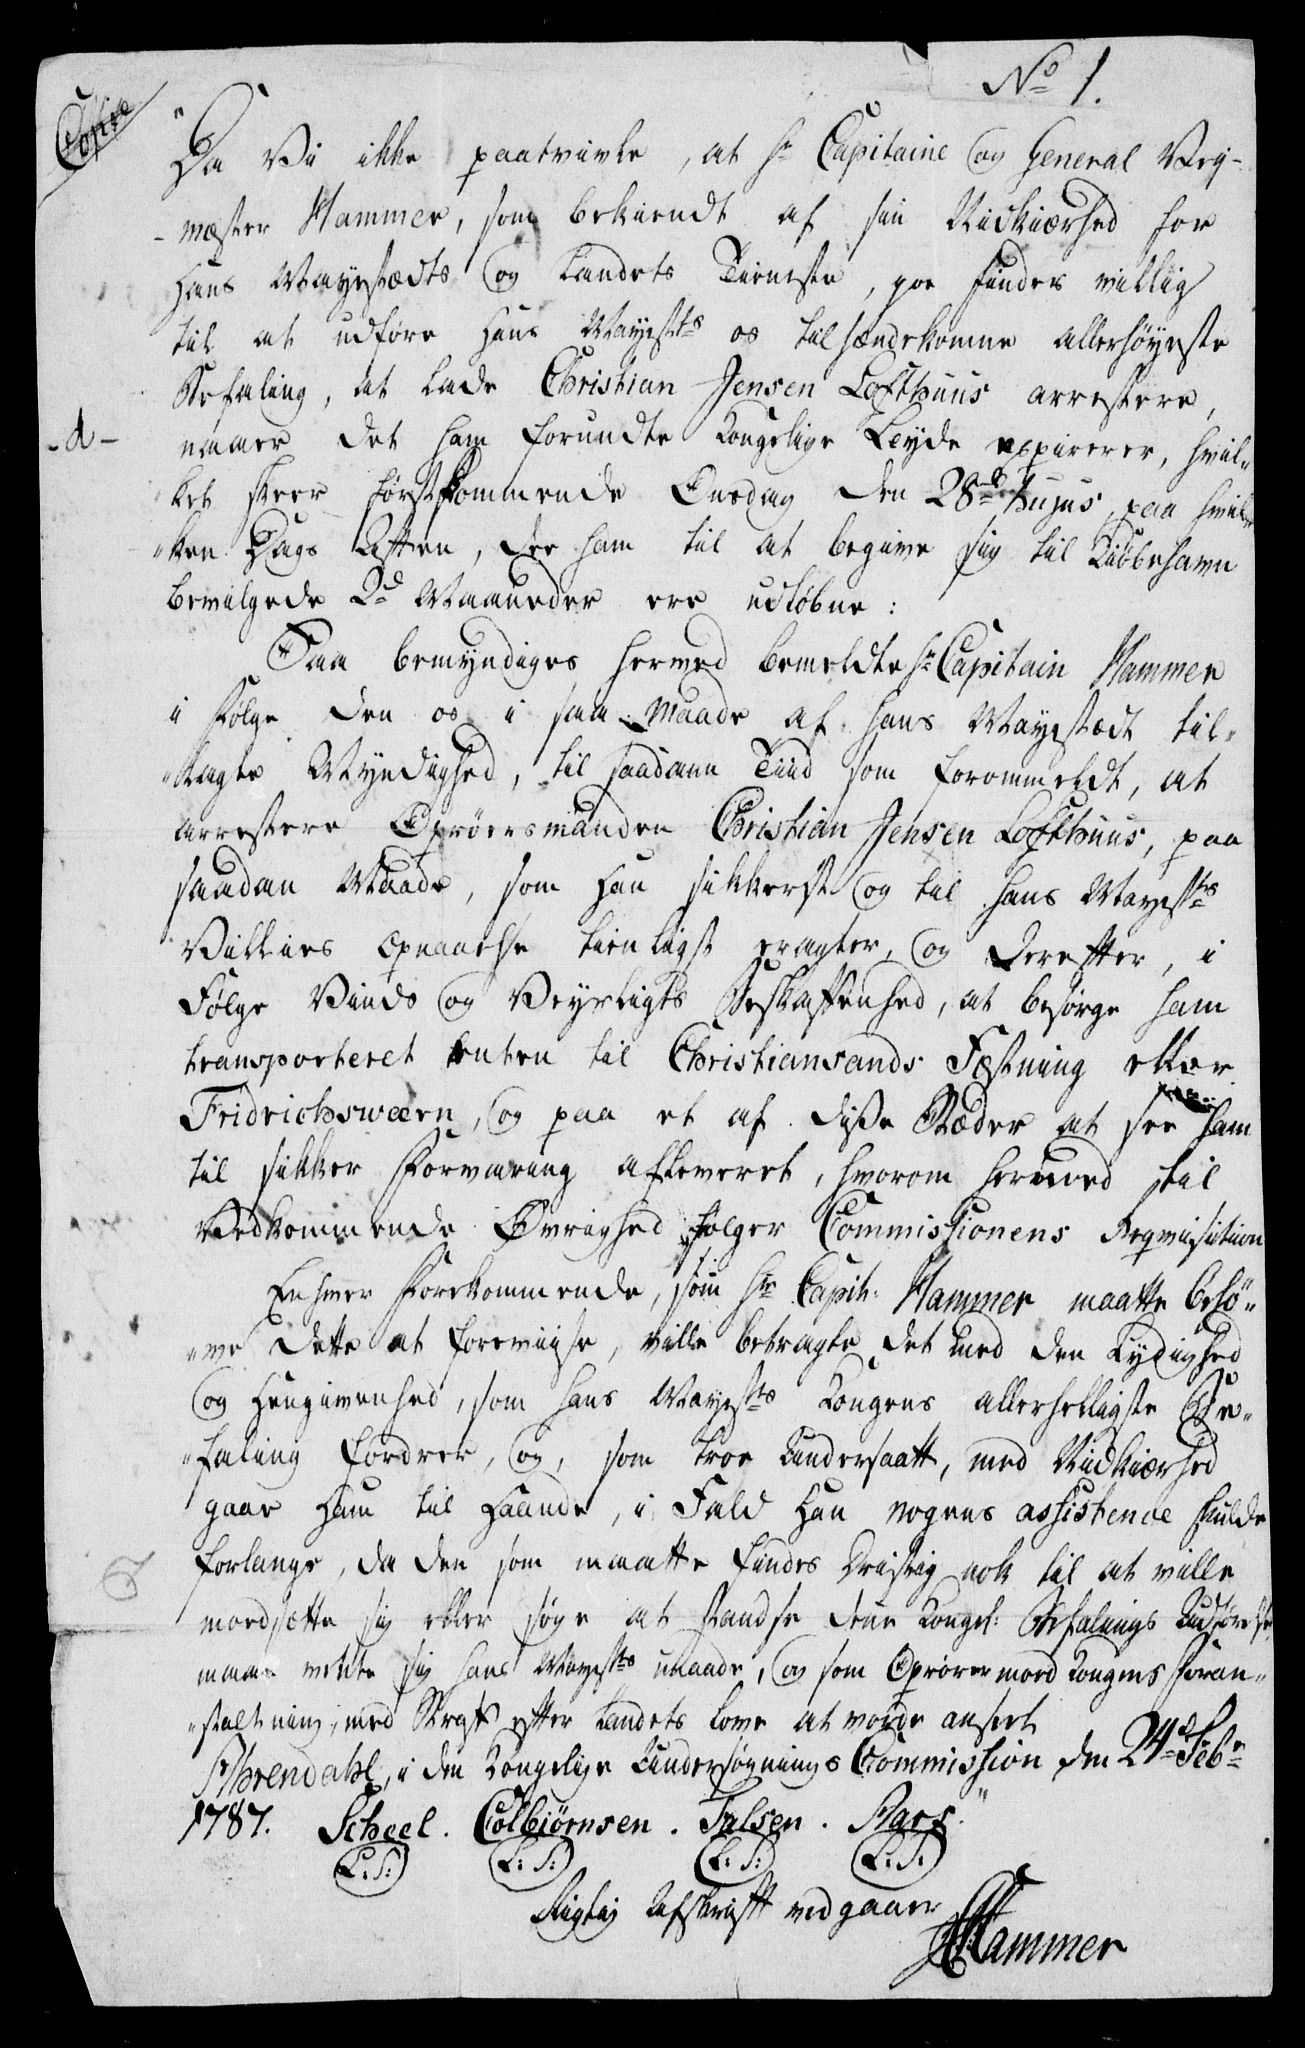 No 1.
Copie
"Da Vi ikke paatvivle, at Hr Capitaine og General Vey-
-mester Hammer, som bekiendt af sin Nidkiærhed for
Hans Mayestæts og Landets Tieneste, jo findes villig
til at udføre Hans Mayestts os tilhændekomne allerhøyeste
Befaling, at lade Christian Jensen Lofthuus arrestere,
-d-
naaar det ham forundte Kongelige Leyde expirerer, hvil"
"ket skeer førstkommende Onsdag den 28de hujus, paa hvil"
"ken Dags Aften, de ham til at begive sig til Kiøbehavn
bevilgede 2de Maaneder ere udløbne:
Saa bemyndiges herved bemeldte Hr Capitain Hammer
i Følge den os i saa Maade af Hans Mayestæt til"
"lagte Myndighed, til saadann Tiid som forommeldt, at
arrestere Oprørersmanden Christian Jensen Lofthuus, paa
saadan Maade, som Han sikkerst og til Hans Mayestts
Villies Opnaaelse tienligst eragter, og derefter, i
Følge Vinds og Veyrligts Beskaffenhed, at besørge ham
transporteret enten til Christiansands Fæstning eller
Fridrichswærn, og paa et af disse Stæder at see ham
til sikker Forvaring afleveret, hvorom herved til
Vedkommende Øvrighed følger Commissionens Reqvisition
Enhver Forekommende, som Hr Capit: Hammer maatte behø"
"ve dette at foreviise, ville betragte det med den Lydighed
og Hengivenhed, som Hans Mayestts Kongens allerhelligste Be"
"faling fordrer, og, som troe Undersaatt, med Nidkiærhed
gaae Ham til Haande, i Fald Han nogens assistence skulde
forlange, da den som maatte findes dristig nok til at ville
modsætte sig eller søge at standse denne Kongel: Befalings Udførelse
maae vente sig Hans Mayestts unaade, og som Oprører mod Kongens Foran"
"staltning, med Straf efter Landets Love at vorde anseet
Ahrendahl, i den Kongelige Undersøgnings Commission den 24de Febr
1787. Scheel. Colbiørnsen. Falsen. Aars."
L: S: L: S: L: S: L: S:
Rigtig Afskrift vedgaaer
Hammer